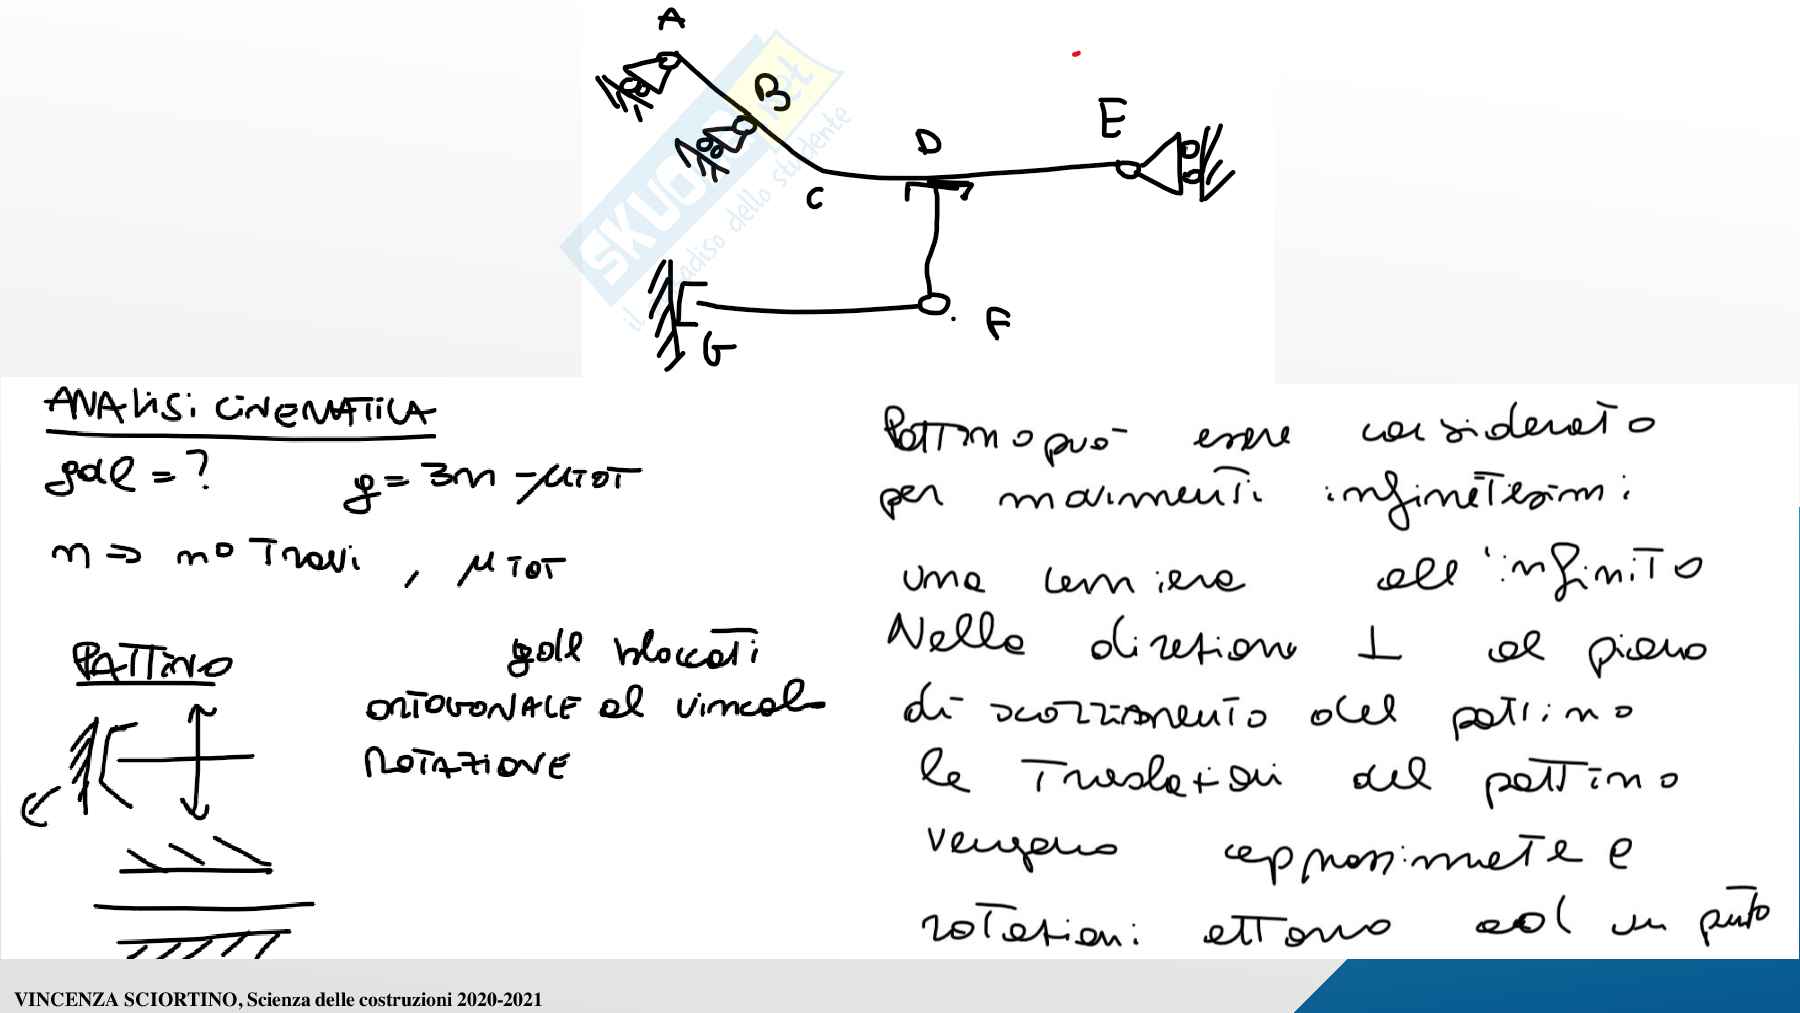 A
B
C
D
E
F
G
SKUOLA.net
il paradiso dello studente
ANALISI CINEMATICA
gdl = ?
g = 3n - μTOT
n => n° Travi , μ TOT
PATTINO
gdl bloccati
ORTOGONALE al vincolo
ROTAZIONE
Pattino può essere considerato
per movimenti infinitesimi
una cerniera all'infinito
Nella direzione ⊥ al piano
di scorrimento del pattino
le Traslazioni del pattino
vengono approssimate e
rotazioni attorno ad un punto
VINCENZA SCIORTINO, Scienza delle costruzioni 2020-2021